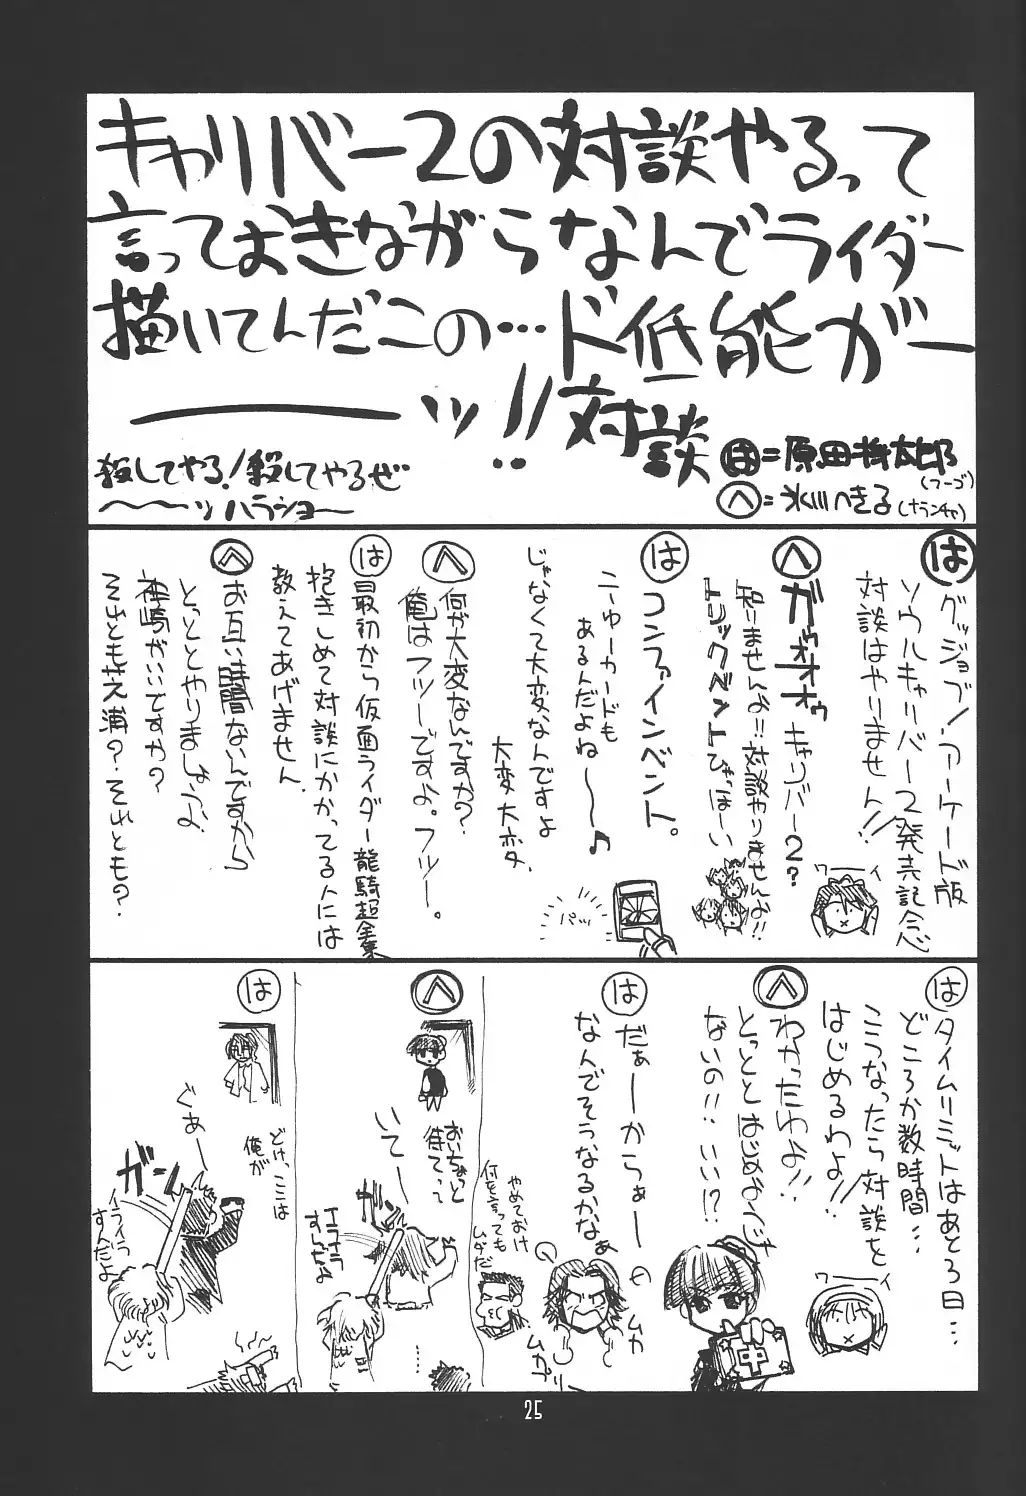 キャリバー2の対談やるって
言っておきながらなんでライダー
描いてんだこの…ド低能がー
ーーッ!!対談
殺してやる!殺してやるぜ
〜〜〜ッハラショー
は=原田将太郎
(フーゴ)
へ=氷川へきる(ナランチャ)
は
グッジョブ!アーケード版
ソウルキャリバー2発売記念
対談はやりません!!
ワーイ
へ
ガゥォオオゥキャリバー2?
知りませんよ!!対談やりませんよ!!
トリックベントひゃっほーい
は
コンファインベント。
ニューカードも
あるんだよね〜〜♪
じゃなくて大変なんですよ
大変大変
パッ
へ
何が大変なんですか?
俺はフツーですよ。フツー。
は
最初から仮面ライダー龍騎超全集
抱きしめて対談にかかってる人には
教えてあげません
へ
お互い時間ないんですから
とっととやりましょうよ
神崎がいいですか?
それとも芝浦?それとも?
は
タイムリミットはあと3日…
どころか数時間…
こうなったら対談を
はじめるわよ!!
ワーイ
へ
わかったわよ!!
とっととはじめようじゃ
ないの!!いい!?
中
は
だぁーからぁーの
なんでそうなるかなぁ
ムカ
ムカプ
やめておけ
何を言っても
ムダだ
へ
おいちょっと
待てって
いてー
イライラ
すんだよ
……
は
どけ、ここは
俺が
ぐぁー
ガン
イライラ
すんだよ
25